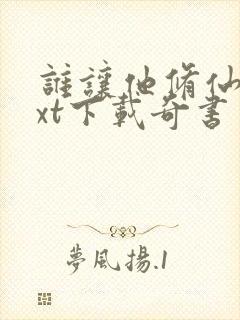 誰讓他脩仙
xt下載奇書
夢風揚.1